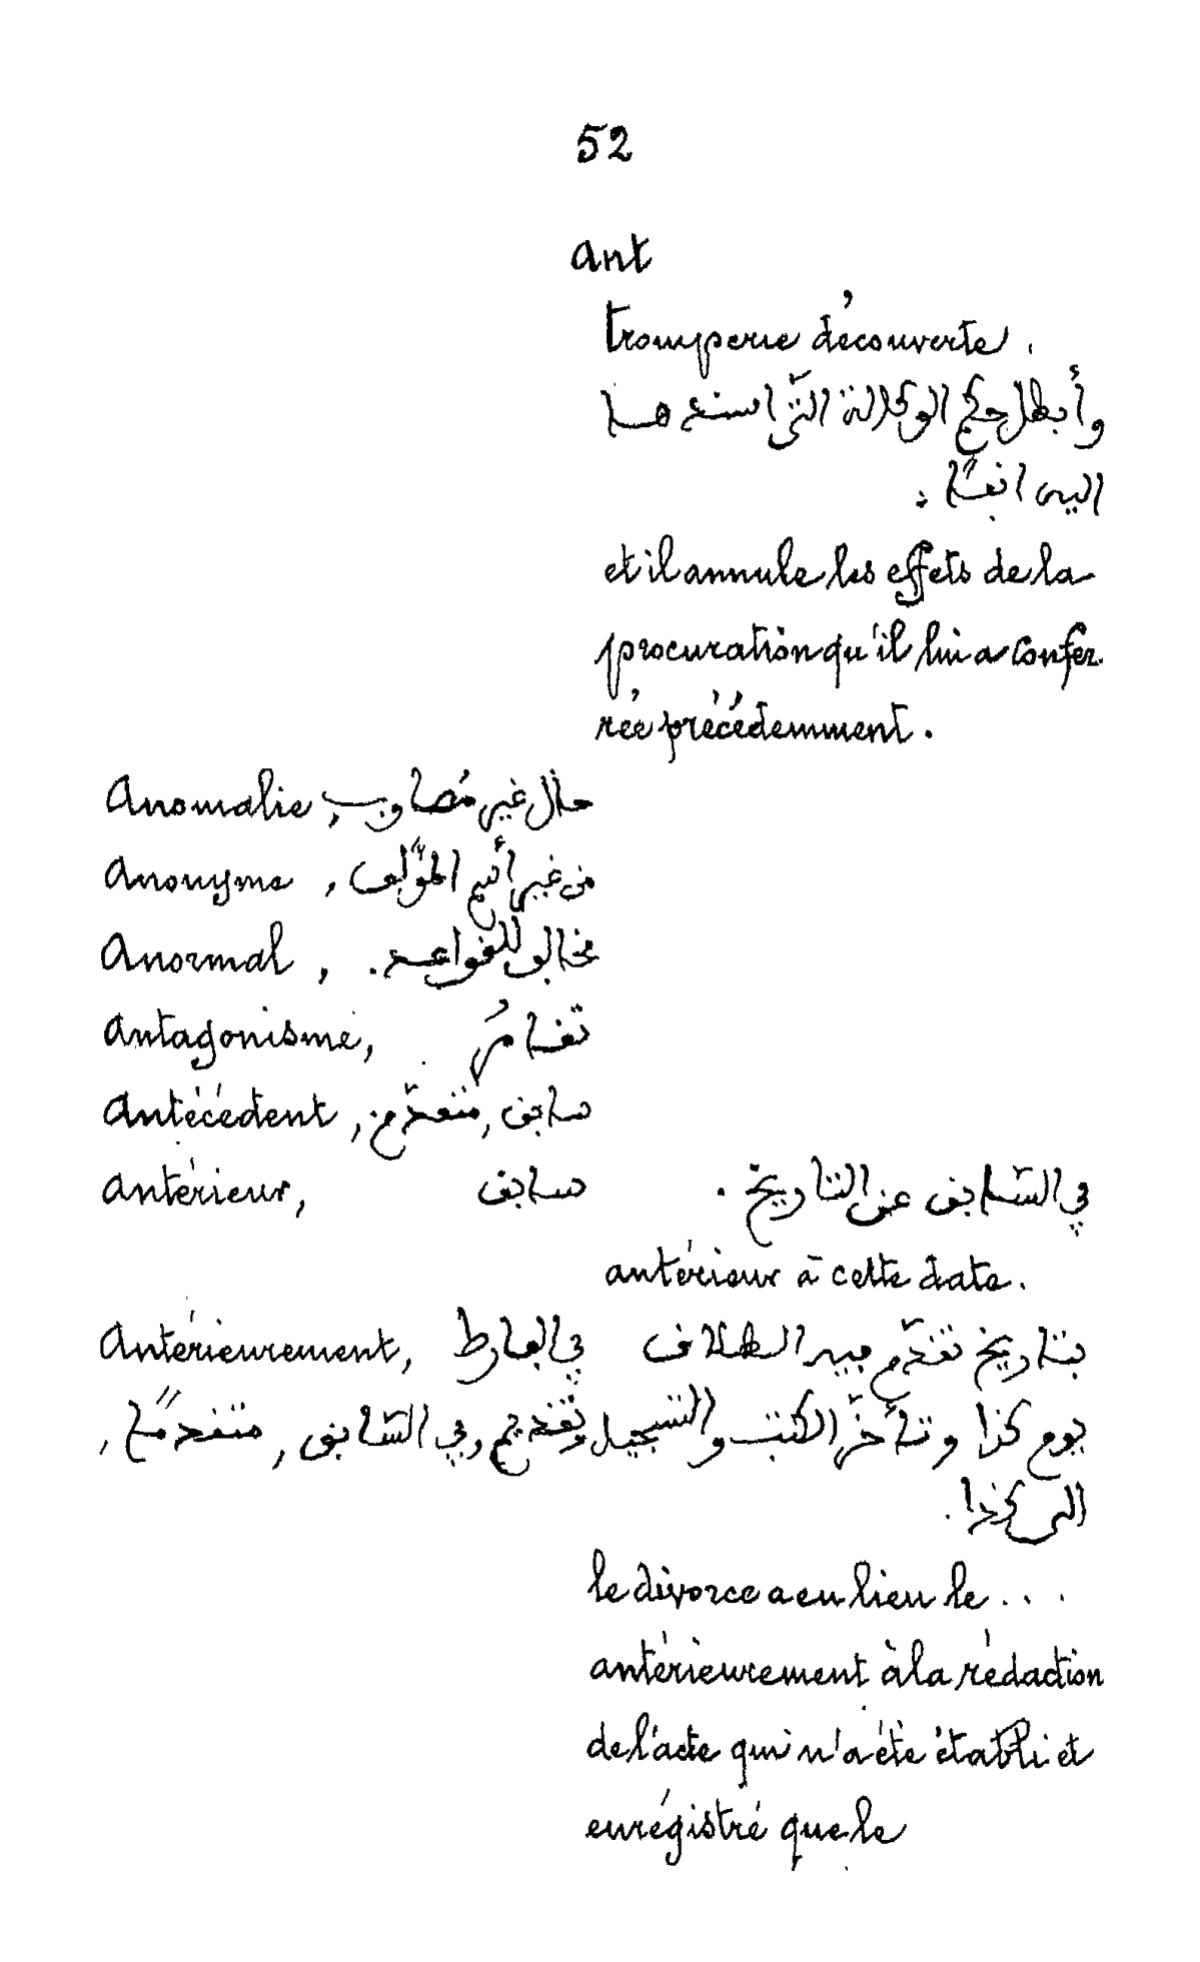 52
ant
tromperie découverte.
وأبطل حكم الوكالة التي اسندها
اليه انفًا
et il annule les effets de la
procuration qu'il lui a confér-
rée précédemment.
Anomalie, حال غير مُصاوب
Anonyme, من غير أسم المؤلف
Anormal, مخالف للقواعد.
Antagonisme,
Antécédent, سابق, متقدّم
Antérieur, سابق في السّابق عن التاريخ.
antérieur à cette date.
Antérieurement, في الفارط بتاريخ تقدّم فيه الطلاق
متقدمًا, في السّابق, وتقديم والتسجيل الكتب وتأخّر يوم كذا
الى كذا.
le divorce a eu lieu le...
antérieurement à la rédaction
de l'acte qui n'a été établi et
enrégistré que le